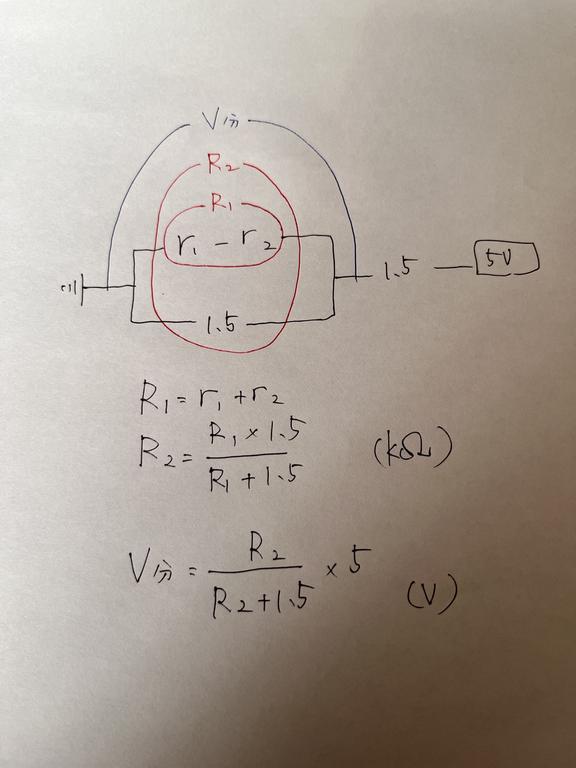 V分
R₂
R₁
r₁ - r₂
1.5 5V
1.5
R₁ = r₁ + r₂
R₂ = \frac{R₁ × 1.5}{R₁ + 1.5} (kΩ)
V分 = \frac{R₂}{R₂ + 1.5} × 5 (V)